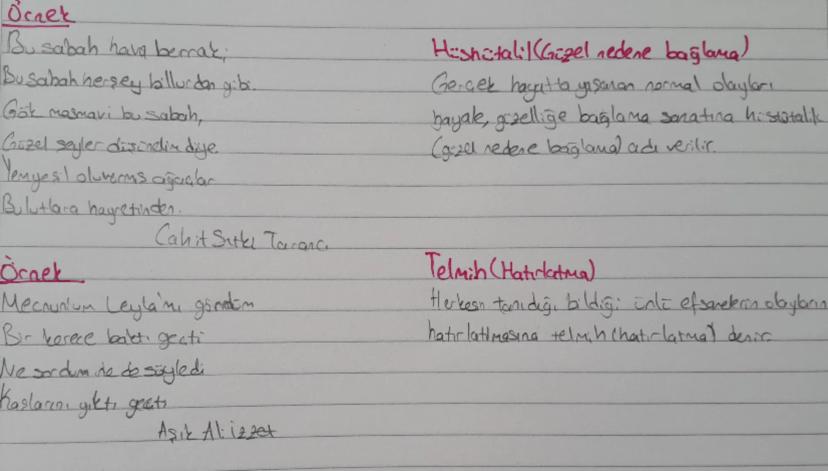 Örnek
Bu sabah hava berrak;
Bu sabah herşey billurdan gibi.
Gök masmavi bu sabah,
Güzel şeyler düşündüm diye.
Yemyeşil oluvermiş ağaçlar
Bulutlara hayretinden.
Cahit Sıtkı Tarancı
Hüsnütalil (Güzel nedene bağlama)
Gerçek hayatta yaşanan normal olayları
hayale, güzelliğe bağlama sanatına hüsnütalil
(güzel nedene bağlama) adı verilir.
Örnek
Mecnunum Leyla'mı gördüm
Bir kerece baktı geçti
Ne sordum ne de söyledi
Kaşlarını yıktı geçti
Aşık Ali izzet
Telmih (Hatırlatma)
Herkesin tanıdığı, bildiği ünlü efsanelerin olayların
hatırlatılmasına telmih (hatırlatma) denir.